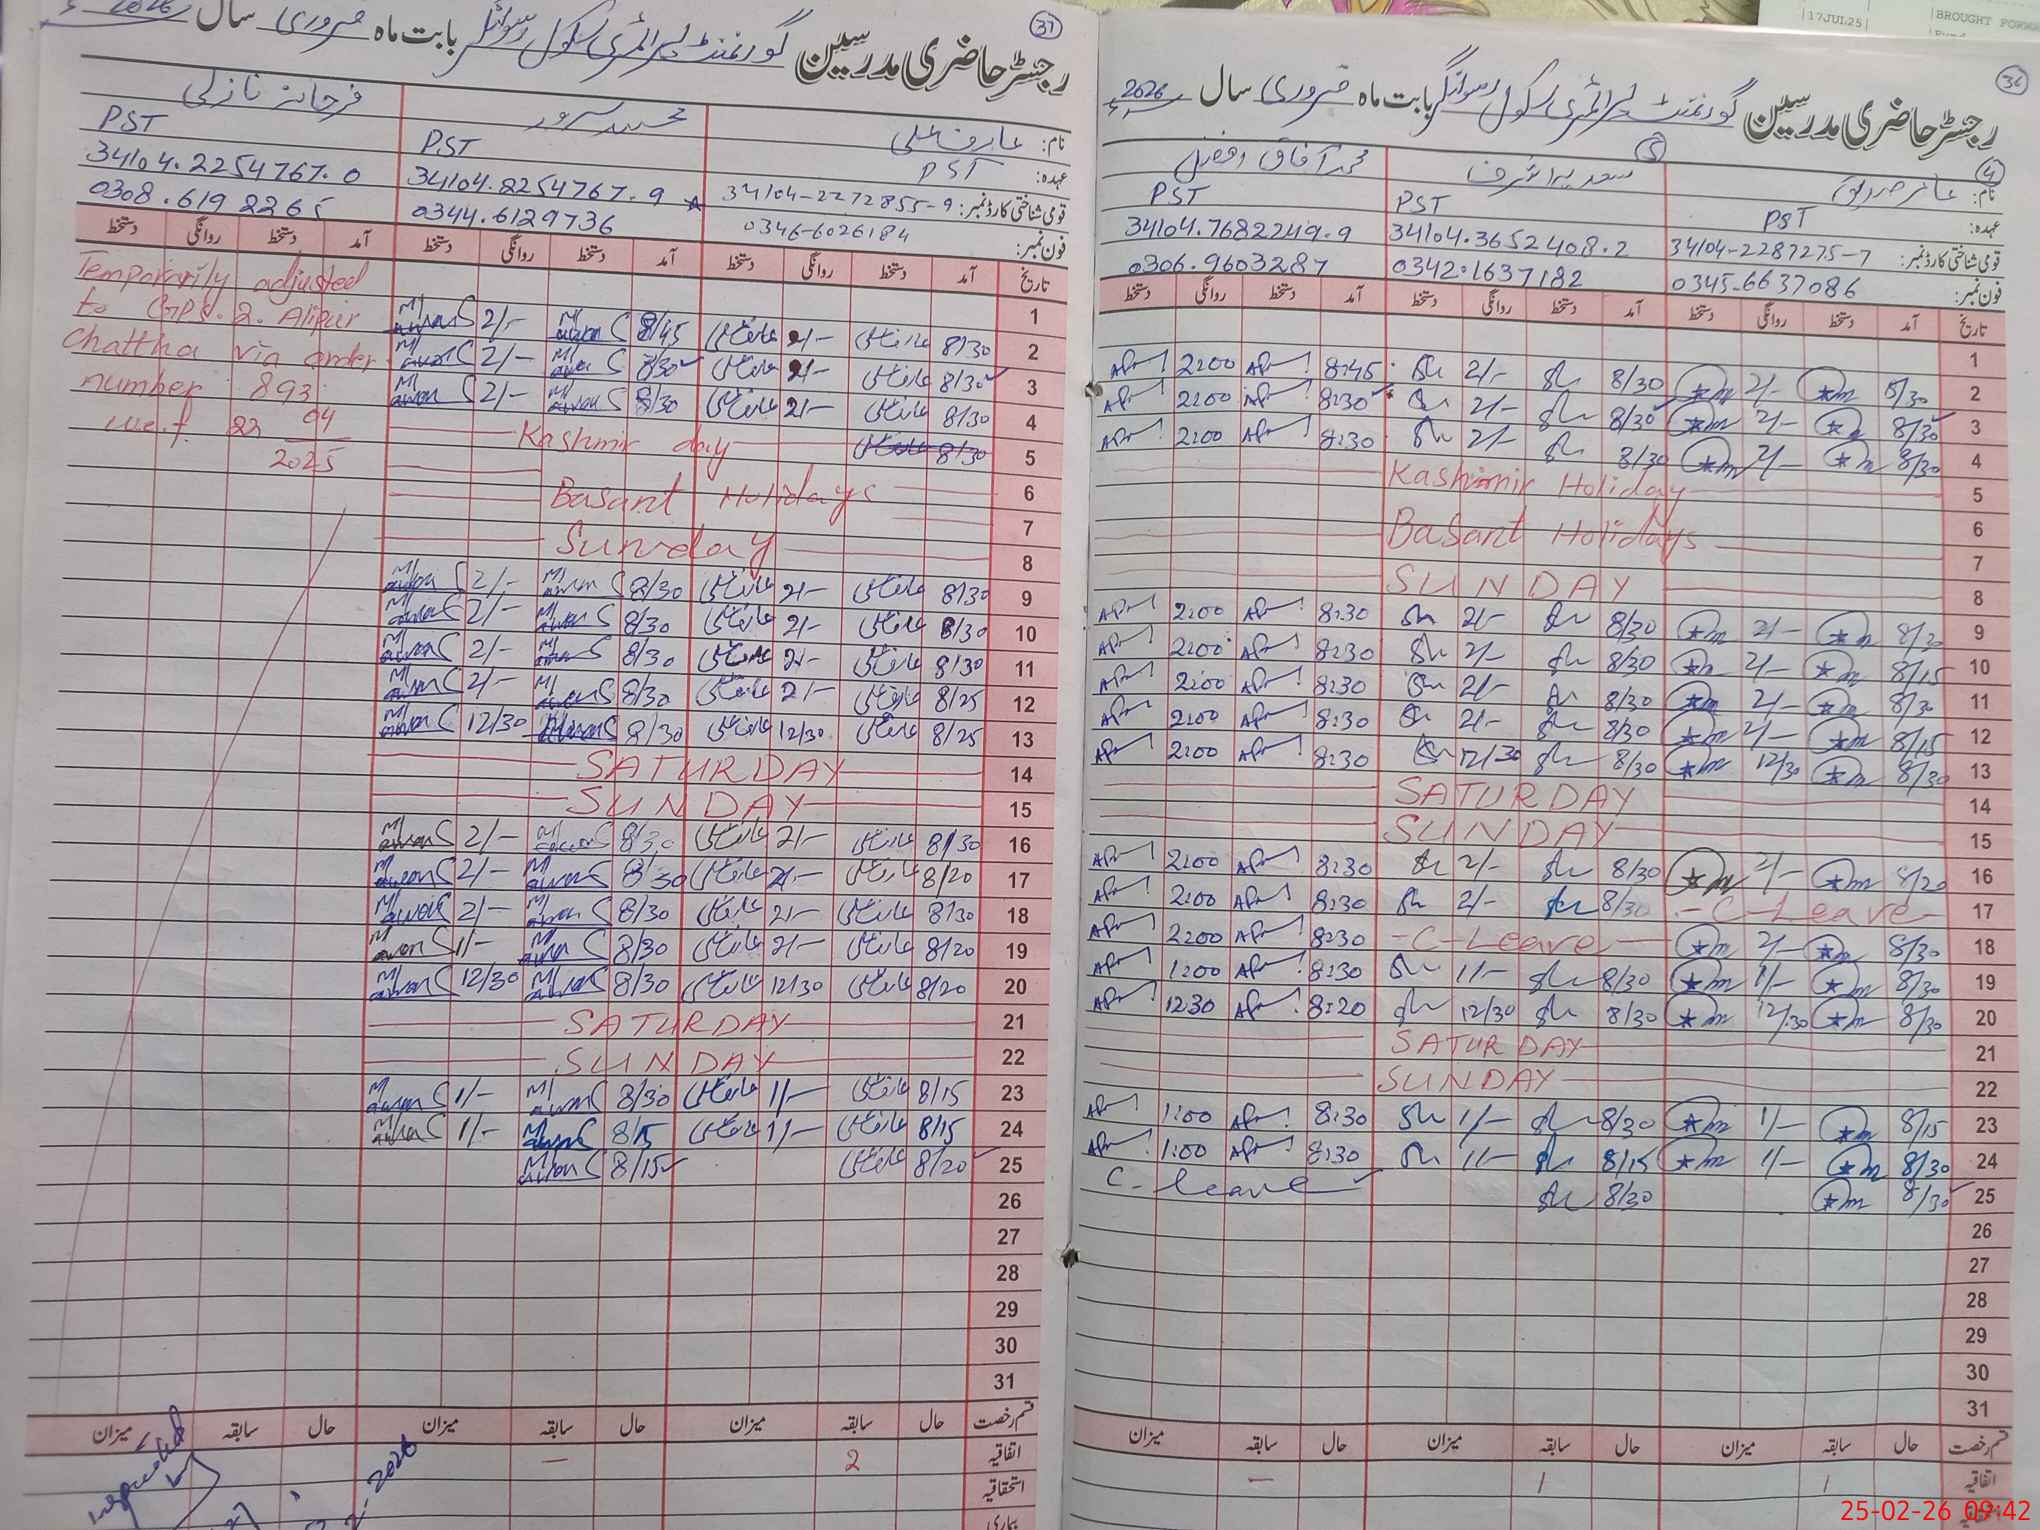 17JUL25
BROUGHT FORWA
37
رجسٹر حاضری مدرسین گورنمنٹ پرائمری سکول رسولنگر بابت ماہ فروری سال 2026ء
نام: عارف علی محمد سرور فرحانہ نازلی
عہدہ: PST PST PST
قومی شناختی کارڈ نمبر: 34104-2272855-9 34104.8254767.9 34104.2254767.0
فون نمبر: 0346-6026184 0344.6129736 0308.6192265
تاریخ آمد دستخط روانگی دستخط آمد دستخط روانگی دستخط آمد دستخط روانگی دستخط
Temporarily adjusted
to GPS. 2. Alipur
Chattha via order
number 893
w.e.f 22 04
2025
1
2 8/30 عارف علی 2/- عارف علی 8/45 2/-
3 8/30 عارف علی 2/- عارف علی 8/30 2/-
4 8/30 عارف علی 2/- عارف علی 8/30 2/-
5 8/30 Kashmir day
6 Basant Holidays
7
8 Sunday
9 8/30 عارف علی 2/- عارف علی 8/30 2/-
10 8/30 عارف علی 2/- عارف علی 8/30 2/-
11 8/30 عارف علی 2/- عارف علی 8/30 2/-
12 8/25 عارف علی 2/- عارف علی 8/30 2/-
13 8/25 عارف علی 12/30 عارف علی 8/30 12/30
14 SATURDAY
15 SUNDAY
16 8/30 عارف علی 2/- عارف علی 8/30 2/-
17 8/20 عارف علی 2/- عارف علی 8/30 2/-
18 8/30 عارف علی 2/- عارف علی 8/30 2/-
19 8/20 عارف علی 2/- عارف علی 8/30 1/-
20 8/20 عارف علی 12/30 عارف علی 8/30 12/30
21 SATURDAY
22 SUNDAY
23 8/15 عارف علی 1/- عارف علی 8/30 1/-
24 8/15 عارف علی 1/- عارف علی 8/15 1/-
25 8/20 عارف علی 8/15
26
27
28
29
30
31
قسم رخصت حال سابقہ میزان حال سابقہ میزان حال سابقہ میزان
اتفاقیہ 2 –
استحقاقیہ
بیماری
2026
36
رجسٹر حاضری مدرسین گورنمنٹ پرائمری سکول رسولنگر بابت ماہ فروری سال 2026ء
4 5
نام: سعدیہ اشرف محمد آفاق افضل
عہدہ: PST PST PST
قومی شناختی کارڈ نمبر: 34104-2287275-7 34104.3652408.2 34104.7682249.9
فون نمبر: 0345-6637086 0342.1637182 0306.9603287
تاریخ آمد دستخط روانگی دستخط آمد دستخط روانگی دستخط آمد دستخط روانگی دستخط
1
2 8/30 2/- 8/30 2/- 8:45 2:00
3 8/30 2/- 8/30 2/- 8:30 2:00
4 8/30 2/- 8/30 2/- 8:30 2:00
5 Kashmir Holiday
6 Basant Holidays
7
8 SUNDAY
9 8/30 2/- 8/30 2/- 8:30 2:00
10 8/15 2/- 8/30 2/- 8:30 2:00
11 8/30 2/- 8/30 2/- 8:30 2:00
12 8/15 2/- 8/30 2/- 8:30 2:00
13 8/30 12/30 8/30 12/30 8:30 2:00
14 SATURDAY
15 SUNDAY
16 8/20 2/- 8/30 2/- 8:30 2:00
17 C-Leave 8/30 2/- 8:30 2:00
18 8/30 2/- C-Leave 8:30 2:00
19 8/30 1/- 8/30 1/- 8:30 1:00
20 8/30 12/30 8/30 12/30 8:20 12:30
21 SATURDAY
22 SUNDAY
23 8/15 1/- 8/30 1/- 8:30 1:00
24 8/30 1/- 8/15 1/- 8:30 1:00
25 8/30 8/30 C-leave
26
27
28
29
30
31
قسم رخصت حال سابقہ میزان حال سابقہ میزان حال سابقہ میزان
اتفاقیہ 1 1 –
25-02-26 09:42